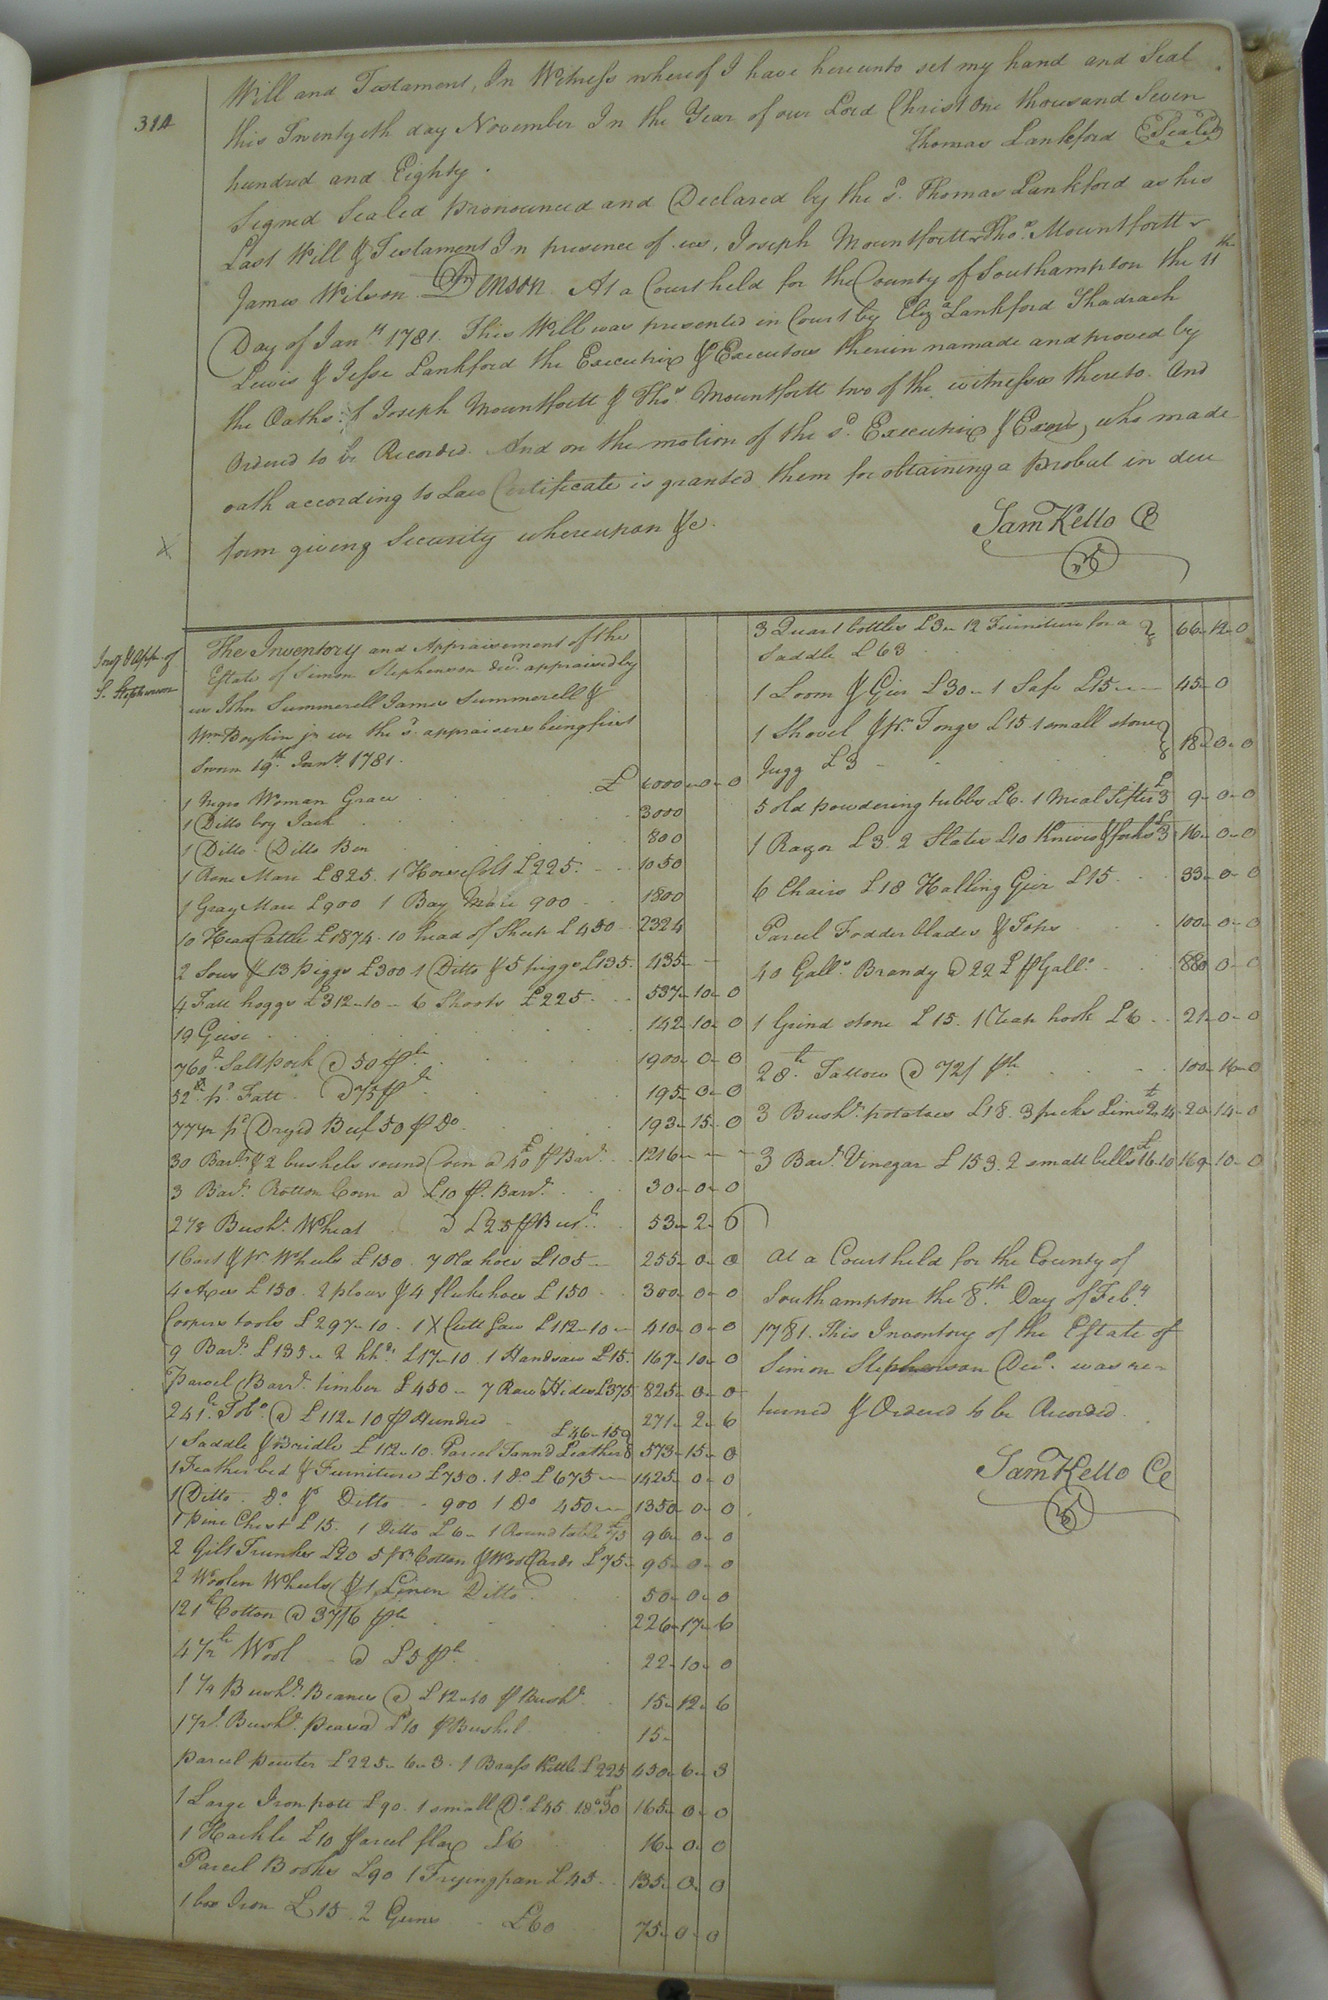 314
Will and Testament, In Witness whereof I have hereunto set my hand and Seal
this Twentyeth day November In the Year of our Lord Christ One thousand Seven
hundred and Eighty. Thomas Lankford Seal
Signed Sealed Pronounced and Declared by the sd. Thomas Lankford as his
Last Will & Testament In presence of us, Joseph Mountfortt Thos. Mountfortt
James Wilson Denson At a Court held for the County of Southampton the 11th
Day of Jany. 1781. This Will was presented in Court by Eliza. Lankford Shadrach
Lewis & Jesse Lankford the Executrix & Executors therein namade and proved by
the Oaths of Joseph Mountfortt & Thos. Mountfortt two of the witnesses thereto And
Ordered to be Recorded. And on the motion of the sd. Executrix & Exors, who made
oath according to Law Certificate is granted them for obtaining a probat in due
form giving Security whereupon &c.
Sam Kello C
X
Invy. & App. of
S. Stephenson
The Inventory and Appraisement of the
Estate of Simon Stephenson decd. appraised by
us John Summerell James Summerell &
Wm. Boykin jr we the sd. appraisers being first
Sworn 19th. Jany. 1781.
1 Negro Woman Grace £ 6000-0-0
1 Ditto boy Jack 3000
1 Ditto Ditto Ben 800
1 Rone Mare £825. 1 Horse Colt £225. 1050
1 Gray Mare £900 1 Bay Mare 900 1800
10 Head Cattle £1874. 10 head of Sheep £450 2324
2 Sows & 13 Piggs £300 1 Ditto & 5 piggs £135. 435
4 Fatt hoggs £312-10- 6 Shoots £225 537-10-0
19 Geese 142-10-0
760 lb Salt pork @ 50 p lb 1900-0-0
52 lb pd Fatt @ 75 p lb 195-0-0
77½ pd Dryed Beef 50 p Do 193-15-0
30 Barls & 2 bushels sound Corn @ £40 p Barl. 1216
3 Barl. Rotton Corn @ £10 p. Barrl. 30-0-0
2⅛ Bushl. Wheat @ £25 p Bushl. 53-2-6
1 Cart & pr Wheels £150. 7 Old hoes £105 255-0-0
4 Axes £150. 2 plows & 4 flukehoes £150 300-0-0
Coopers tools £297-10. 1 X Cutt Saw £112-10 410-0-0
9 Barl. £135 2 hhds £17-10. 1 Handsaw £15. 167-10-0
Parcel Barrl. timber £450 - 7 Raw Hides £375 825-0-0
241 lb Tobo. @ £112-10 p Hundred 271-2-6
1 Saddle & Bridle £112-10. Parcel Tannd Leather £46-15 573-15-0
1 Feather bed & Furniture £750. 1 do. £675 1425-0-0
1 Ditto Do. & Ditto 900 1 Do 450 1350-0-0
1 Pine Chest £15. 1 Ditto £6 - 1 Round table £75 96-0-0
2 Gilt Trunks £20 5 pr Cotton & Wool Cards £75 95-0-0
2 Woolen Wheels & 1 Linen Ditto 50-0-0
121 lb Cotton @ 37/6 p lb 226-17-6
4½ lb Wool @ £5 p lb 22-10-0
1¼ Bushl. Beanes @ £12-10 p Bushl. 15-12-6
1½ Bushl. Pease @ £10 p Bushel 15
Parcel Pewter £225-6-3. 1 Brass Kettle £225 450-6-3
1 Large Iron pott £90. 1 small Do. £45 1 do £30 165-0-0
1 Hackle £10 Parcel flax £6 16-0-0
Parcel Books £90 1 Fryingpan £45 135-0-0
1 box Iron £15 2 Guns £60 75-0-0
3 Quart bottles £3-12 Furniture for a
Saddle £63 66-12-0
1 Loom & Gier £30 - 1 Safe £15 45-0
1 Shovel & pr. Tongs £15 1 small stone
Jugg £3 18-0-0
5 old powdering tubbs £6. 1 Meal Sifter £3 9-0-0
1 Razor £3. 2 Slates £10 Knives & forks £3 16-0-0
6 Chairs £18 Halling Gier £15 33-0-0
Parcel Fodder blades & Tops 100-0-0
40 Galls. Brandy @ 22 £ p Gall. 880 0-0
1 Grind stone £15. 1 Reap hook £6 21-0-0
28 lb. Tallow @ 72/ p lb 100-16-0
3 Bushl. potatoes £18 3 pecks Lime £2-14 20-14-0
3 Barl. Vinegar £153. 2 small bells £16-10 169-10-0
At a Court held for the County of
Southampton the 8th. Day of Feby.
1781. This Inventory of the Estate of
Simon Stephenson Decd. was re-
turned & Ordered to be Recorded.
Sam Kello Cc